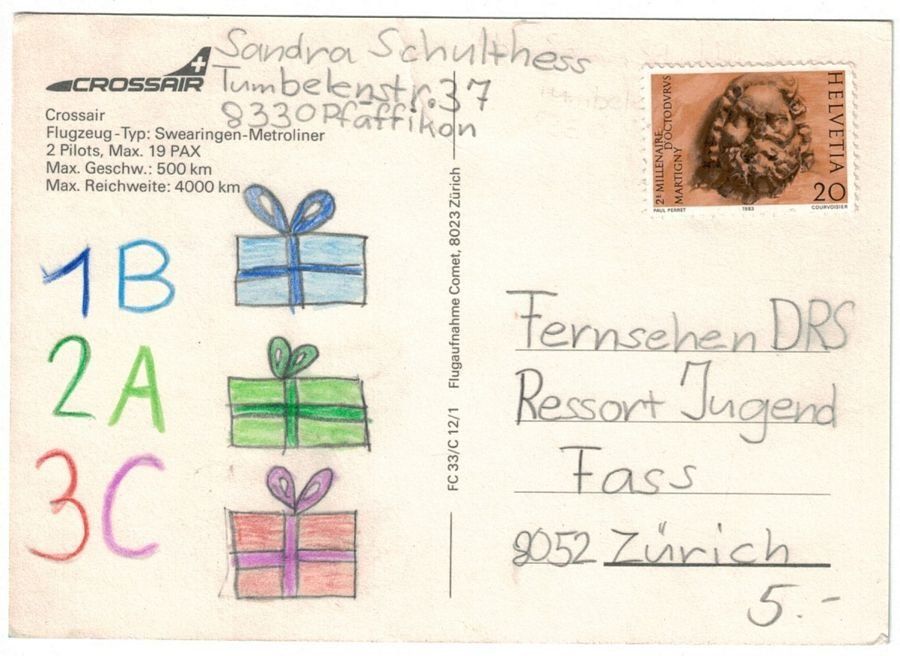 Sandra Schulthess
Tumbelenstr. 37
8330 Pfäffikon
CROSSAIR
Crossair
Flugzeug-Typ: Swearingen-Metroliner
2 Pilots, Max. 19 PAX
Max. Geschw.: 500 km
Max. Reichweite: 4000 km
1B
2A
3C
FC 33/C 12/1 Flugaufnahme Comet, 8023 Zürich
2E MILLENAIRE
D'OCTODVRVS
MARTIGNY
HELVETIA
20
PAUL PERRET 1983 COURVOISIER
Fernsehen DRS
Ressort Jugend
Fass
8052 Zürich
5.-